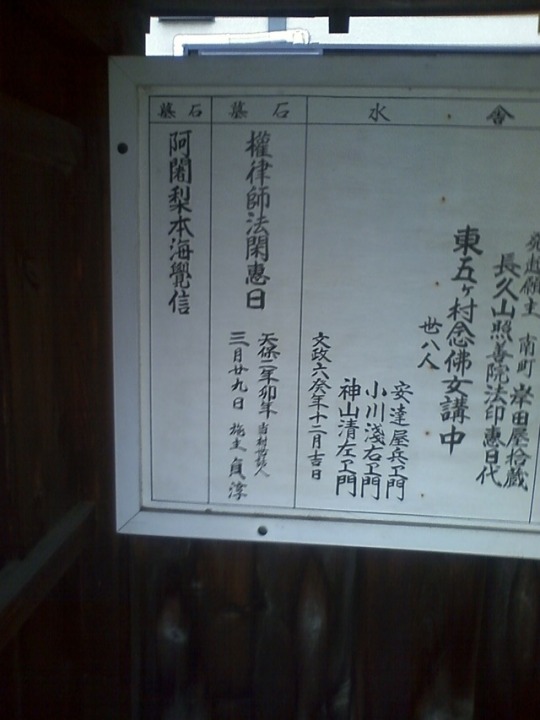 水舎
発起願主 南町 岸田屋拾蔵
長久山照善院法印惠日代
東五ヶ村念佛女講中
丗八人
安達屋兵ヱ門
小川淺右ヱ門
神山清左ヱ門
文政六癸年十二月吉日
石墓
權律師法閑惠日
天保二年卯年 当村世話人
三月廿九日 施主 貞淳
石墓
阿闍梨本海覺信